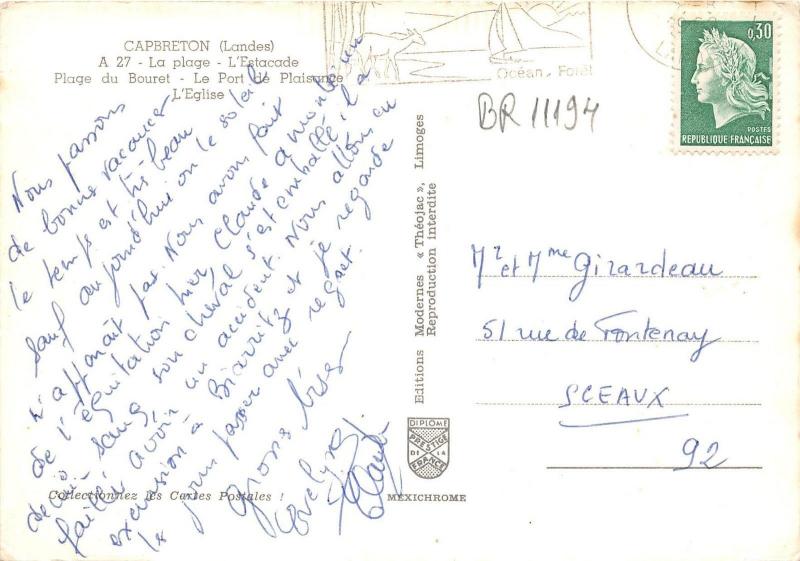 CAPBRETON (Landes)
A 27 - La plage - L'Estacade
Plage du Bouret - Le Port de Plaisance
L'Eglise
Océan, Forêt
0,30
POSTES
REPUBLIQUE FRANÇAISE
BR 11194
Nous passons
de bonnes vacances
le temps est très beau
sauf aujourd'hui où le soleil
n'apparaît pas. Nous avons fait
de l'équitation hier, Claude a monté un
sang, son cheval s'est emballé il a
failli avoir un accident. Nous allons en
excursion à Biarritz et je regarde
le jours passer avec regret.
Grosses bises
Evelyne
Claude
Editions Modernes « Théojac », Limoges
Reproduction interdite
Mr et Mme Girardeau
51 rue de Fontenay
SCEAUX
92
DIPLOME
PRESTIGE
DE LA
FRANCE
Collectionnez les Cartes Postales !
MEXICHROME